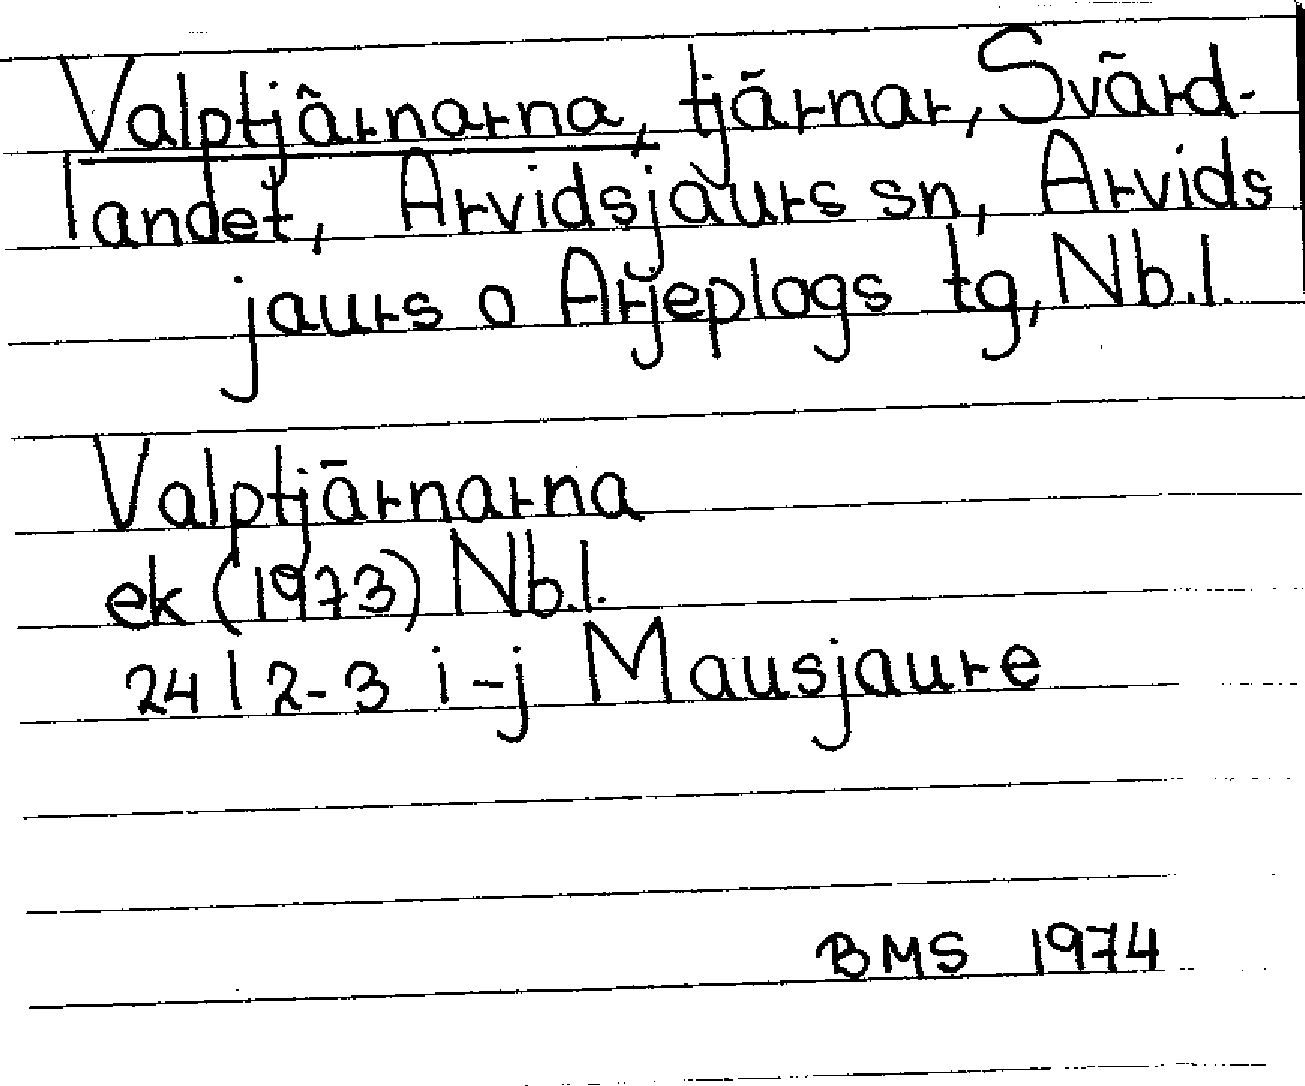 Valptjärnarna, tjärnar, Svärd-
landet, Arvidsjaurs sn, Arvids
jaurs o Arjeplogs tg, Nb.l.
Valptjärnarna
ek (1973) Nb.l.
24 I 2-3 i-j Mausjaure
BMS 1974